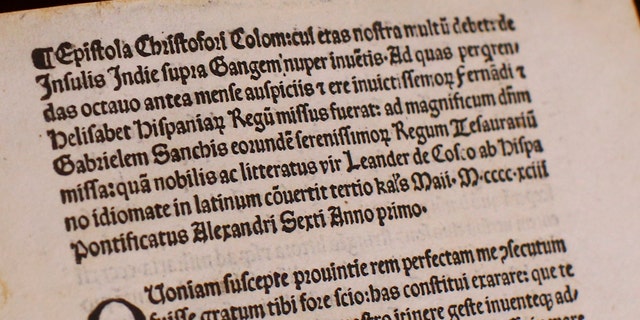 ¶ Epistola Christofori Colom: cui etas nostra multū debet: de
Insulis Indie supra Gangem nuper inuētis. Ad quas perqren/
das octauo antea mense auspiciis ⁊ ere inuictissemoꝝ Fernādi ⁊
Helisabet Hispaniaꝝ Regū missus fuerat: ad magnificum dn̄m
Gabrielem Sanchis eorundē serenissimoꝝ Regum Tesaurariū
missa: quā nobilis ac litteratus vir Leander de Cosco ab Hispa
no idiomate in latinum cōuertit tertio kaƚs Maii. M.cccc.xciii
Pontificatus Alexandri Sexti Anno primo.
Quoniam suscepte prouintie rem perfectam me ꝯsecutum
fuisse gratum tibi fore scio: has constitui exarare: que te
nostro itinere geste inuenteqꝫ ad/